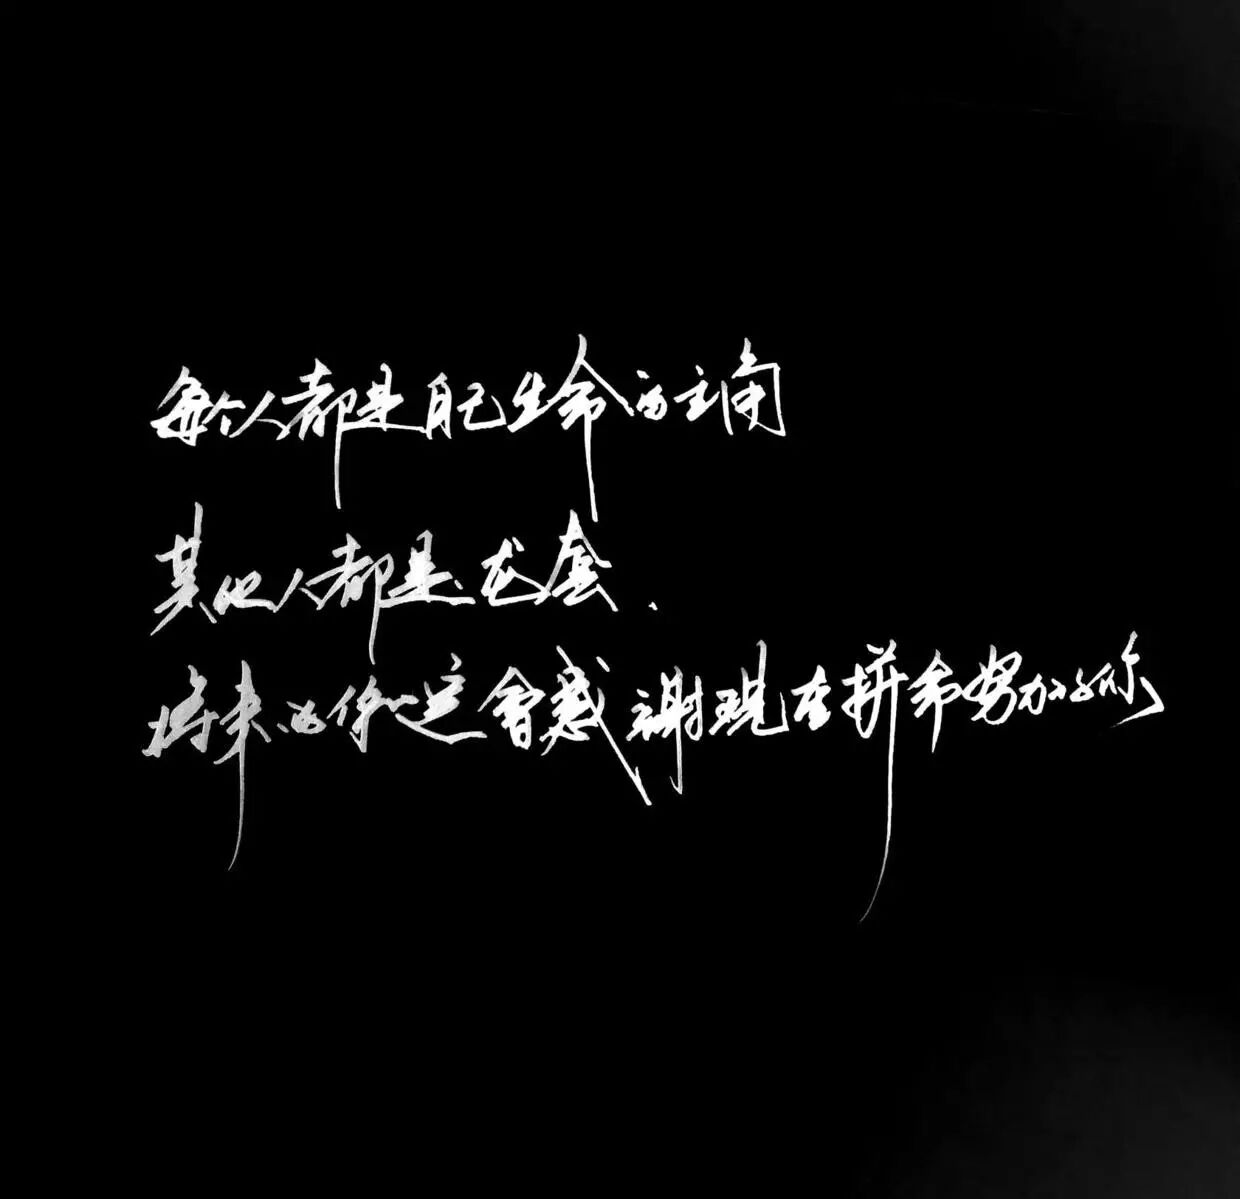 每个人都是自己生命的主角
其他人都是龙套.
将来的你一定会感谢现在拼命努力的你